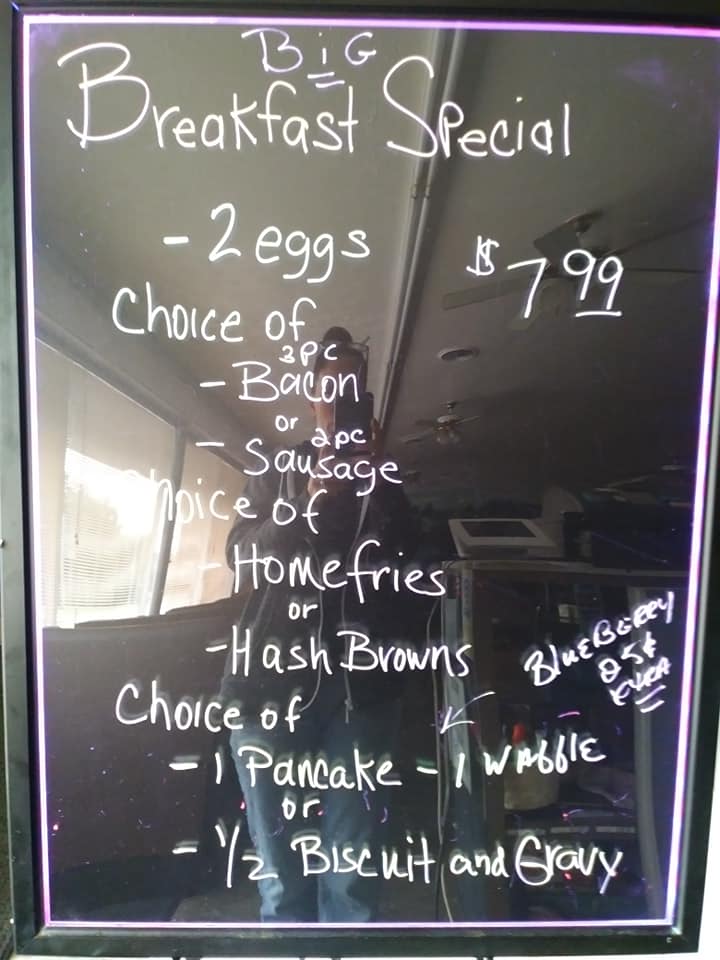 BiG
Breakfast Special
- 2 eggs
$7.99
Choice of
3pc
- Bacon
or 2pc
- Sausage
Choice of
- Homefries
or
- Hash Browns
BlueBerry
25¢
extra
Choice of
- 1 Pancake - 1 WAffle
or
- 1/2 Biscuit and Gravy